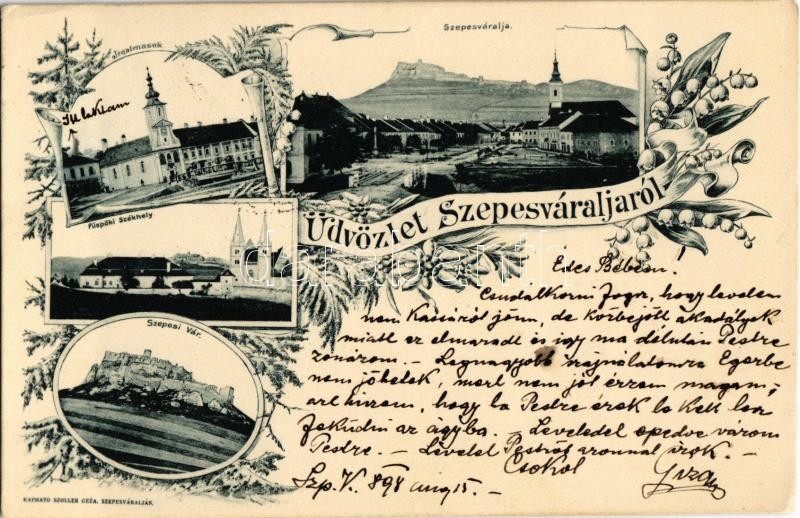 Szepesváralja.
Irgalmasok
Itt laktam
Üdvözlet Szepesváraljaról
Püspöki Székhely
Szepesi Vár.
darabanth
Edes Bébém.
Csodálkozni fogsz, hogy levelem
nem Kassáról jönn, de közbejött akadályok
miatt ez elmaradt és így ma délután Pestre
utazom. - Legnagyobb sajnálatomra Egerbe
nem jöhetek, mert nem jól érzem magam,
azt hiszem, hogy ha Pestre érek le kell
feküdni az ágyba. - Leveledet epedve várom
Pestre. - Levelet Pestről azonnal írok. -
Csókol
Szp. V. 898 aug 15. -
KAPHATÓ SZOLLER GÉZA, SZEPESVÁRALJÁN.